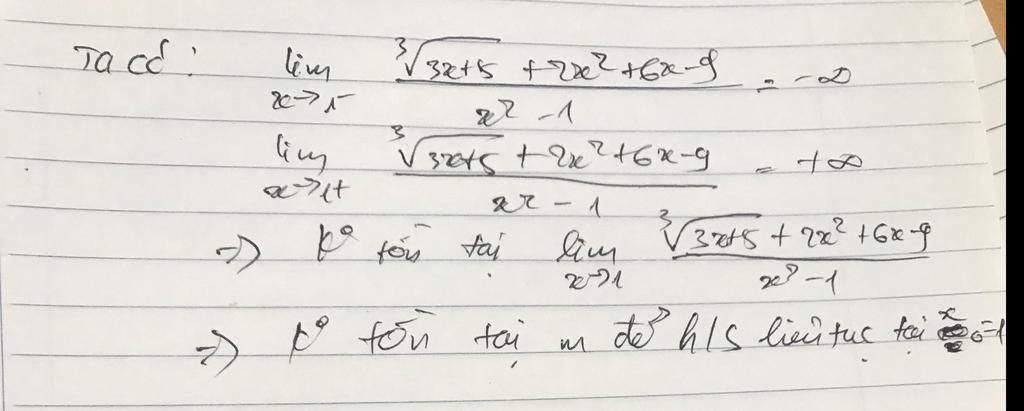 Ta có : lim x→1- (∛(3x+5) + 2x² + 6x - 9)/(x² - 1) = -∞
lim x→1+ (∛(3x+5) + 2x² + 6x - 9)/(x² - 1) = +∞
=> K° tồn tại lim x→1 (∛(3x+5) + 2x² + 6x - 9)/(x² - 1)
=> K° tồn tại m để h/s liên tục tại x₀=1